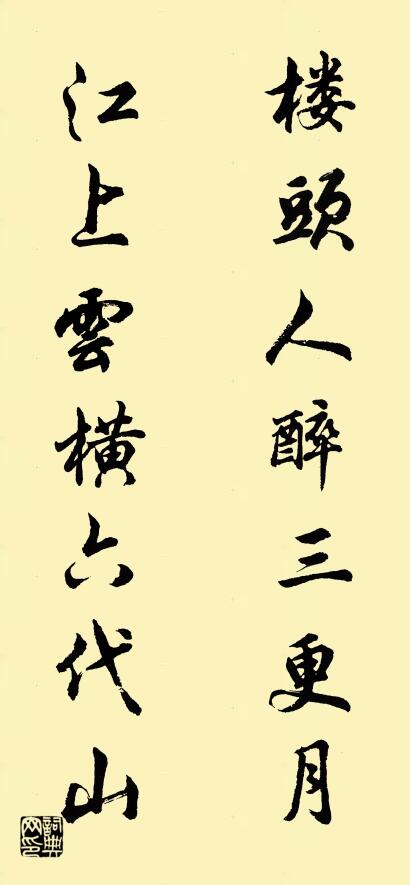 楼頭人醉三更月
江上雲横六代山
詞典网印